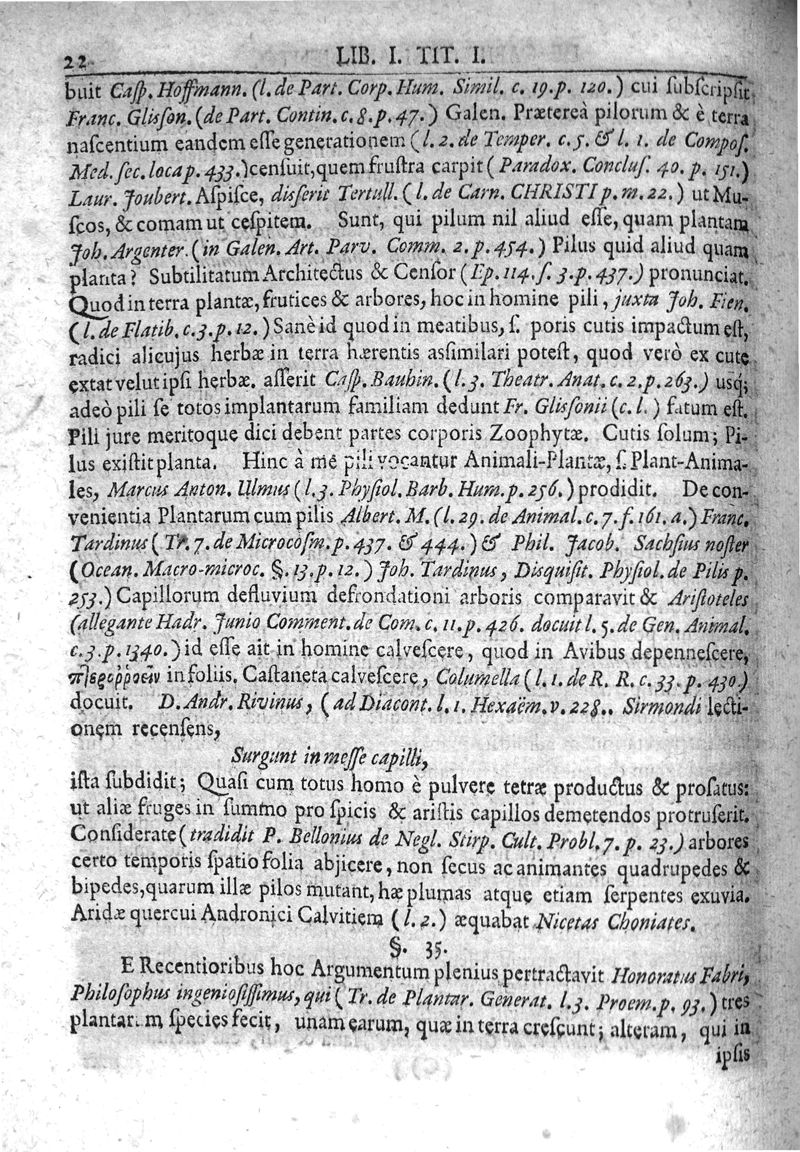 22 LIB. I. TIT. I.
buit Casp. Hoffmann. (l. de Part. Corp. Hum. Simil. c. 19. p. 120.) cui subscripsit
Franc. Glisson. (de Part. Contin. c. 8. p. 47.) Galen. Prætereà pilorum & è terra
nascentium eandem esse generationem (l. 2. de Temper. c. 5. & l. 1. de Compos.
Med. sec. loca p. 433.) censuit, quem frustra carpit (Paradox. Conclus. 40. p. 151.)
Laur. Joubert. Aspisce, disserit Tertull. (l. de Carn. CHRISTI p. m. 22.) ut Mu-
scos, & comam ut cespitem. Sunt, qui pilum nil aliud esse, quam plantam
Joh. Argenter. (in Galen. Art. Parv. Comm. 2. p. 454.) Pilus quid aliud quam
planta? Subtilitatum Architectus & Censor (Ep. 114. s. 3. p. 437.) pronunciat.
Quod in terra plantæ, frutices & arbores, hoc in homine pili, juxta Joh. Fien.
(l. de Flatib. c. 3. p. 12.) Sanè id quod in meatibus, s. poris cutis impactum est,
radici alicujus herbæ in terra hærentis assimilari potest, quod verò ex cute
extat velut ipsi herbæ. asserit Casp. Bauhin. (l. 3. Theatr. Anat. c. 2. p. 263.) usq;
adeò pili se totos implantarum familiam dedunt Fr. Glissonii (c. l.) fatum est.
Pili jure meritoque dici debent partes corporis Zoophytæ. Cutis solum; Pi-
lus existit planta. Hinc à me pili vocantur Animali-Plantæ, s. Plant-Anima-
les, Marcus Anton. Ulmus (l. 3. Physiol. Barb. Hum. p. 256.) prodidit. De con-
venientia Plantarum cum pilis Albert. M. (l. 29. de Animal. c. 7. f. 161. a.) Franc.
Tardinus (Tr. 7. de Microcosm. p. 437. & 444.) & Phil. Jacob. Sachsius noster
(Ocean. Macro-microc. §. 13. p. 12.) Joh. Tardinus, Disquisit. Physiol. de Pilis p.
253.) Capillorum defluvium defrondationi arboris comparavit & Aristoteles
(allegante Hadr. Junio Comment. de Com. c. 11. p. 426. docuit l. 5. de Gen. Animal.
c. 3. p. 1340.) id esse ait in homine calvescere, quod in Avibus depennescere,
in foliis. Castaneta calvescere, Columella (l. 1. de R. R. c. 33. p. 430.)
docuit. D. Andr. Rivinus, (ad Diacont. l. 1. Hexaëm. v. 228.. Sirmondi lecti-
onem recensens,
Surgunt in messe capilli,
ista subdidit; Quasi cum totus homo è pulvere tetræ productus & prosatus:
ut aliæ fruges in summo pro spicis & aristis capillos demetendos protruserit.
Considerate (tradidit P. Bellonius de Negl. Stirp. Cult. Probl. 7. p. 23.) arbores
certo temporis spatio folia abjicere, non secus ac animantes quadrupedes &
bipedes, quarum illæ pilos mutant, hæ plumas atque etiam serpentes exuvia.
Aridæ quercui Andronici Calvitiem (l. 2.) æquabat Nicetas Choniates.
§. 35.
E Recentioribus hoc Argumentum plenius pertractavit Honoratus Fabri,
Philosophus ingeniosissimus, qui (Tr. de Plantar. Generat. l. 3. Proem. p. 93.) tres
plantarum species fecit, unam earum, quæ in terra crescunt; alteram, qui in
ipsis